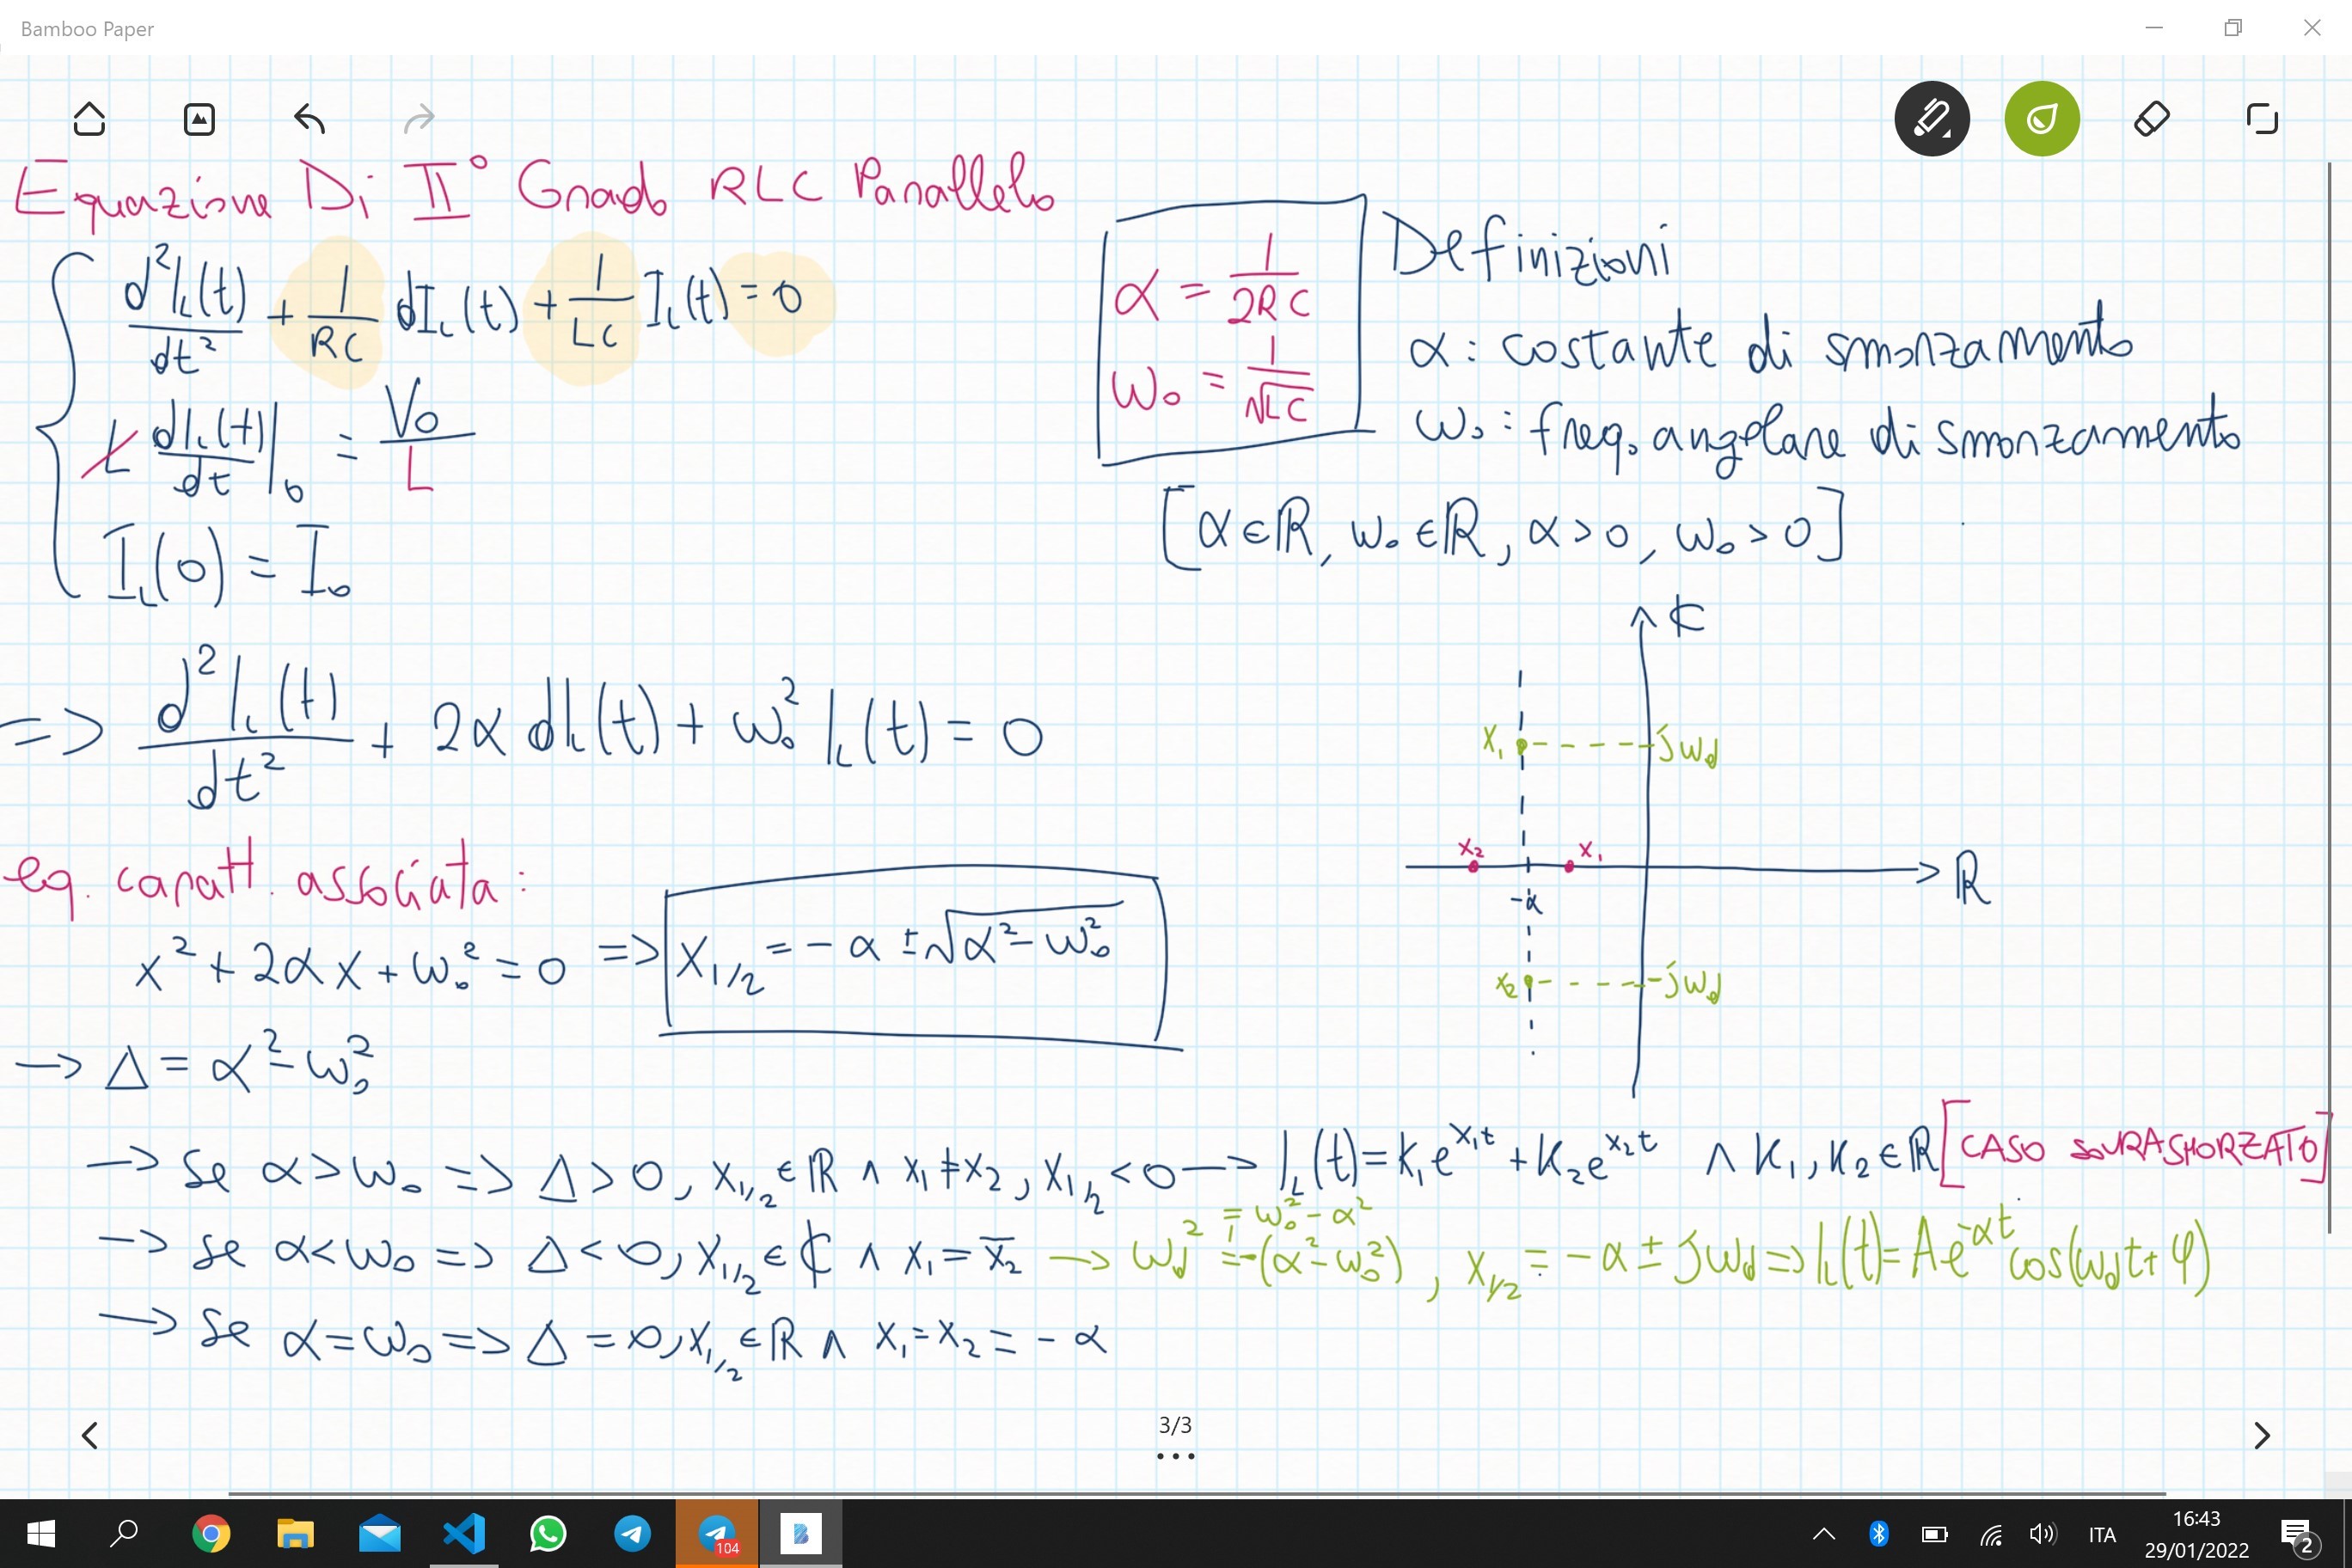 Bamboo Paper
Equazione Di II° Grado RLC Parallelo
d²I_L(t)/dt² + 1/RC dI_L(t) + 1/LC I_L(t) = 0
L dI_L(t)/dt |₀ = V₀/L
I_L(0) = I₀
α = 1/2RC
ω₀ = 1/√LC
Definizioni
α : costante di smorzamento
ω₀ : freq. angolare di smorzamento
[α ∈ ℝ, ω₀ ∈ ℝ, α > 0, ω₀ > 0]
=> d²I_L(t)/dt² + 2α dI_L(t) + ω₀² I_L(t) = 0
ℂ
x₁ jω_d
x₂ x₁ ℝ
-α
x₂ -jω_d
eq. caratt. associata :
x² + 2αx + ω₀² = 0 => x₁/₂ = -α ± √α² - ω₀²
→ Δ = α² - ω₀²
→ Se α > ω₀ => Δ > 0, x₁/₂ ∈ ℝ ∧ x₁ ≠ x₂, x₁/₂ < 0 → I_L(t) = K₁e^x₁t + K₂e^x₂t ∧ K₁, K₂ ∈ ℝ [CASO SOVRASMORZATO]
→ Se α < ω₀ => Δ < 0, x₁/₂ ∈ ℂ ∧ x₁ = x̄₂ → ω_d² = -(α² - ω₀²) = ω₀² - α², x₁/₂ = -α ± jω_d => I_L(t) = Ae^-αt cos(ω_d t + φ)
→ Se α = ω₀ => Δ = 0, x₁/₂ ∈ ℝ ∧ x₁ = x₂ = -α
3/3
104
ITA
16:43
29/01/2022
2